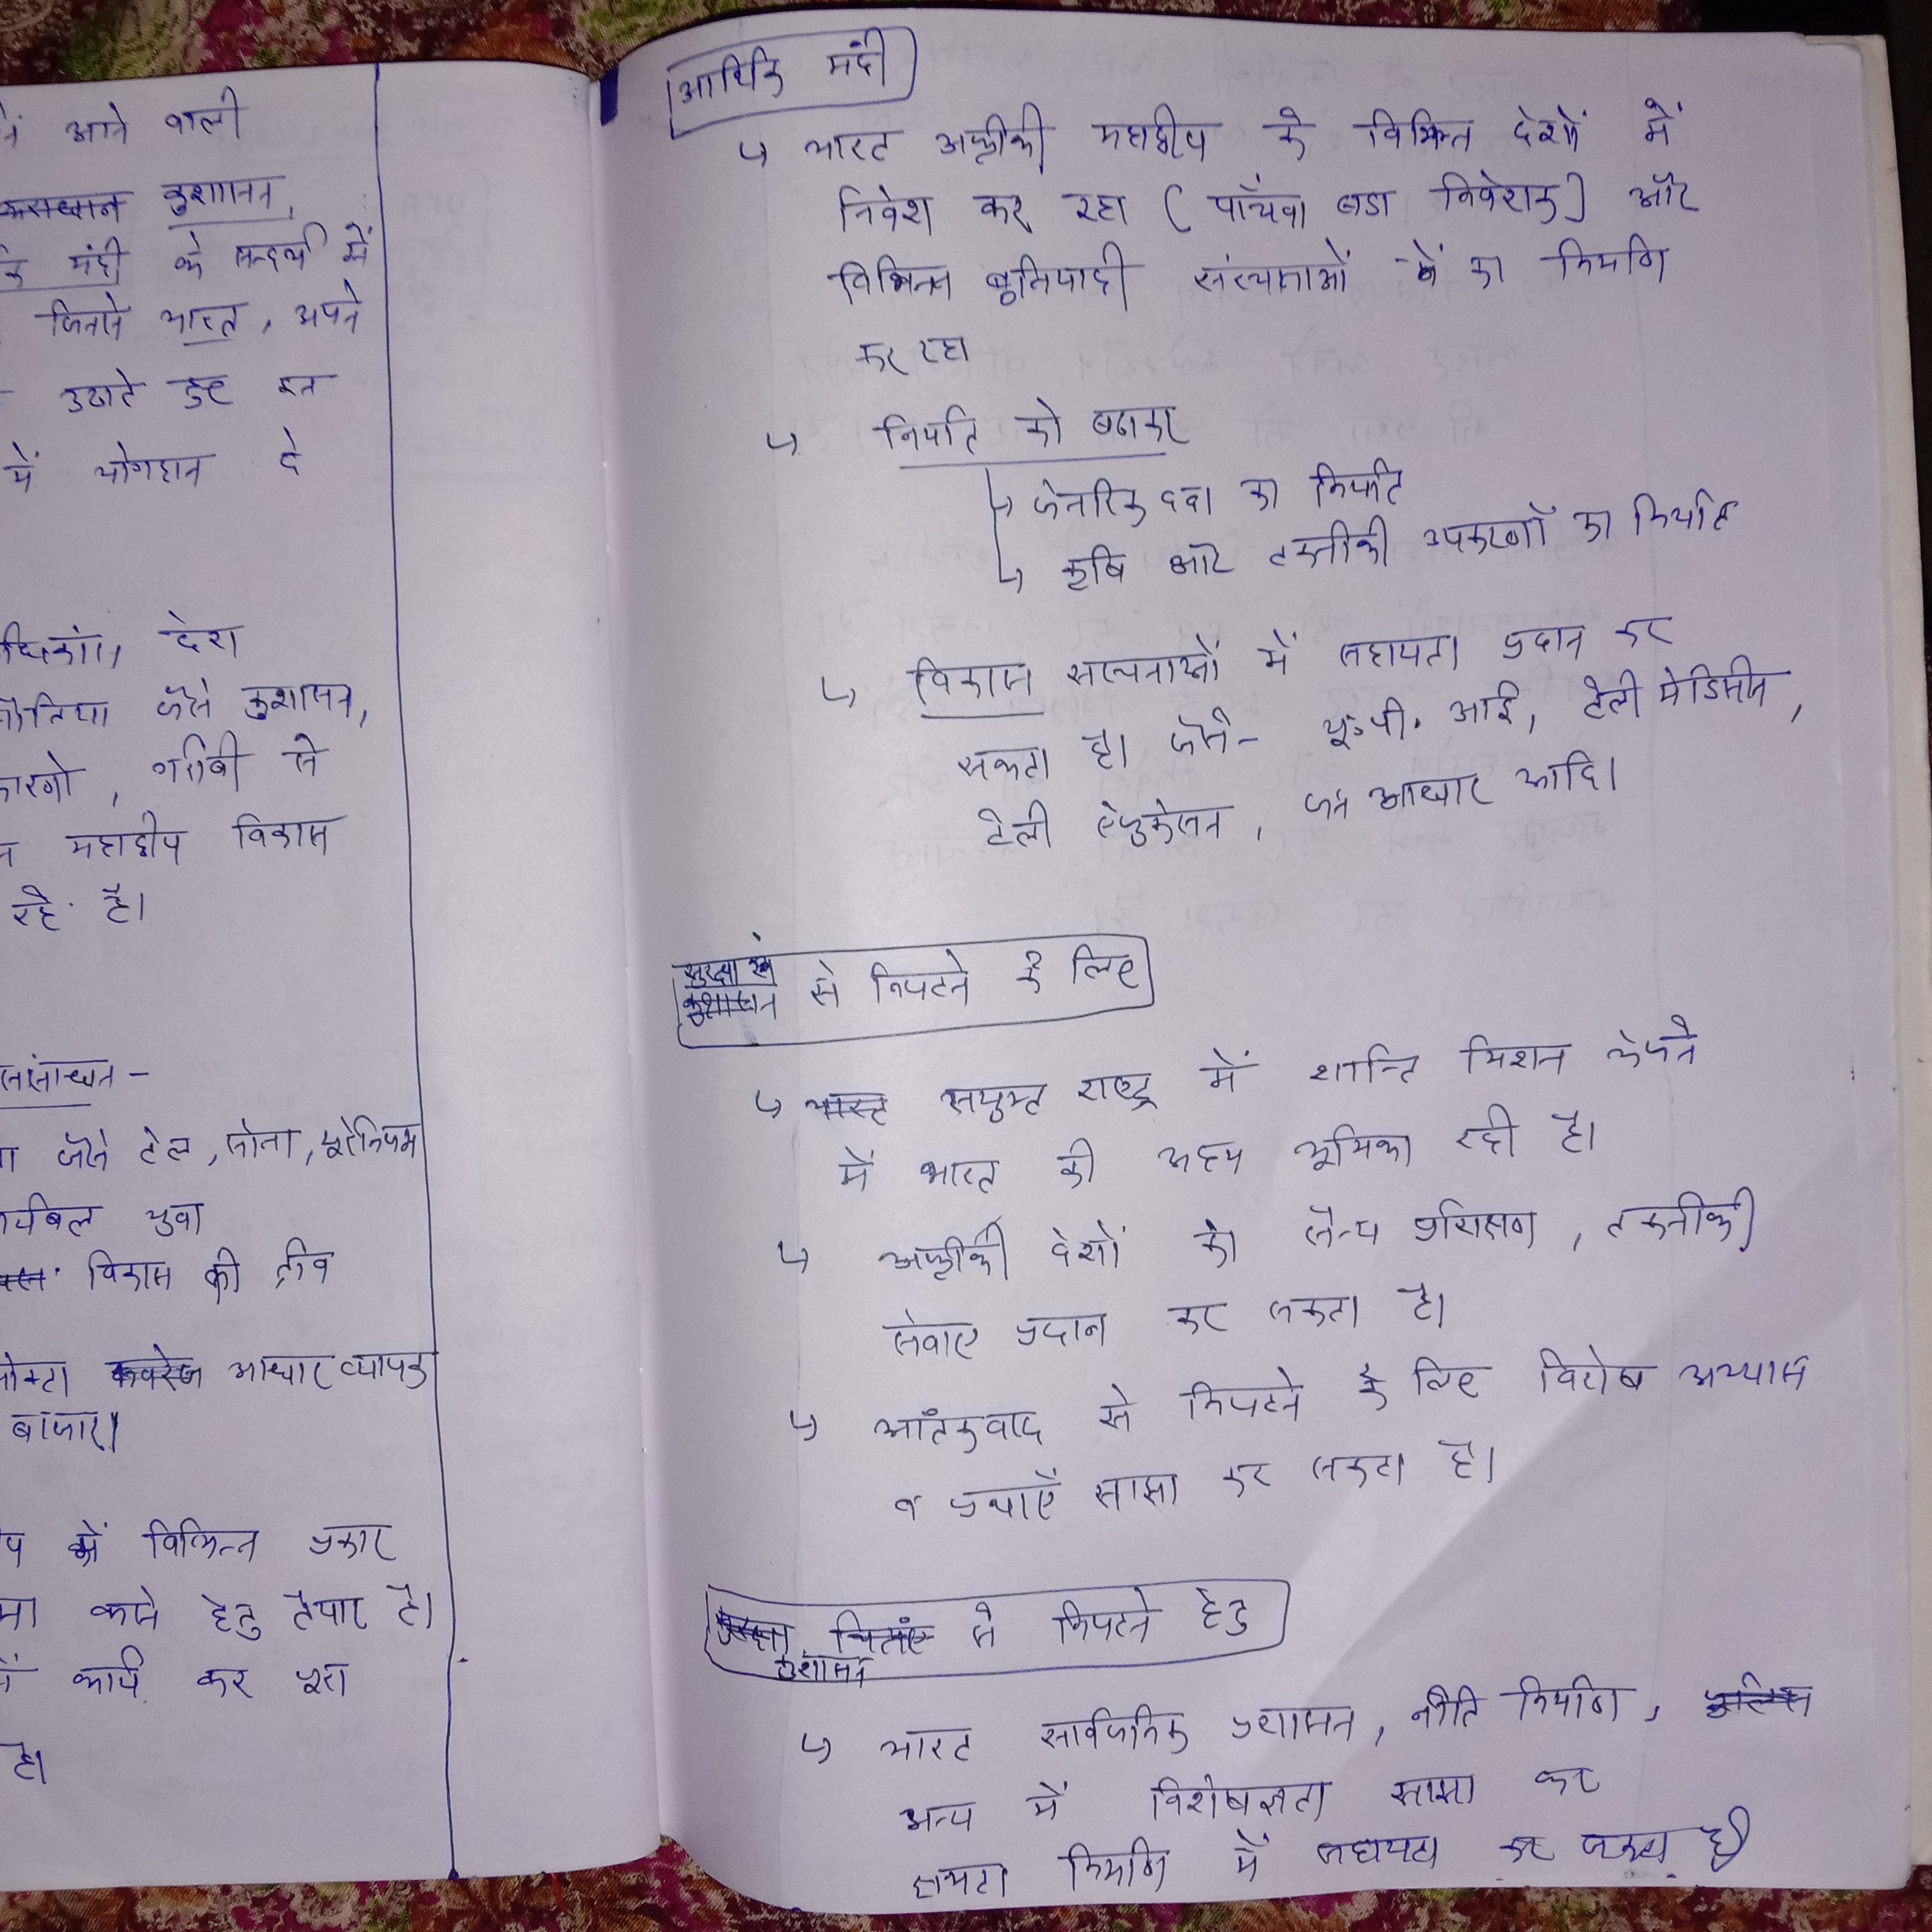 में आने वाली
कुशासन,
मंदी के सन्दर्भ में
जिनसे भारत, अपने
उठाते हुए इन
में योगदान दे
देश
जैसे कुशासन,
गरीबी से
महाद्वीप विकास
रहे है।
संसाधन -
जैसे तेल, सोना, यूरेनियम
युवा
विकास की तीव्र
आधार व्यापक
बाजार।
में विभिन्न प्रकार
करने हेतु तैयार है।
कार्य कर रहा
है।
आर्थिक मंदी
↳ भारत अफ्रीकी महाद्वीप के विभिन्न देशों में
निवेश कर रहा (पाँचवा बडा निवेशक) और
विभिन्न बुनियादी संरचनाओं का निर्माण
कर रहा
↳ निर्यात को बढाकर
↳ जेनरिक दवा का निर्यात
↳ कृषि और तकनीकी उपकरणों का निर्यात
↳ विकास सरचनाओं में सहायता प्रदान कर
सकता है। जैसे - यू.पी.आई, टेली मेडिसीन,
टेली ऐजुकेसन, जन आधार आदि।
सुरक्षा से निपटने के लिए
↳ सयुक्त राष्ट्र में शान्ति मिशन भेजने
में भारत की अहम भूमिका रही है।
↳ अफ्रीकी देशों को सैन्य प्रशिक्षण, तकनीकी
सेवाए प्रदान कर सकता है।
↳ आंतकवाद से निपटने के लिए विशेष अभ्यास
व प्रथाएँ साझा कर सकता है।
कुशासन से निपटने हेतु
↳ भारत सार्वजनिक प्रशासन, नीति निर्माण,
अन्य में विशेषज्ञता साझा कर
क्षमता निर्माण में सहायता कर सकता है